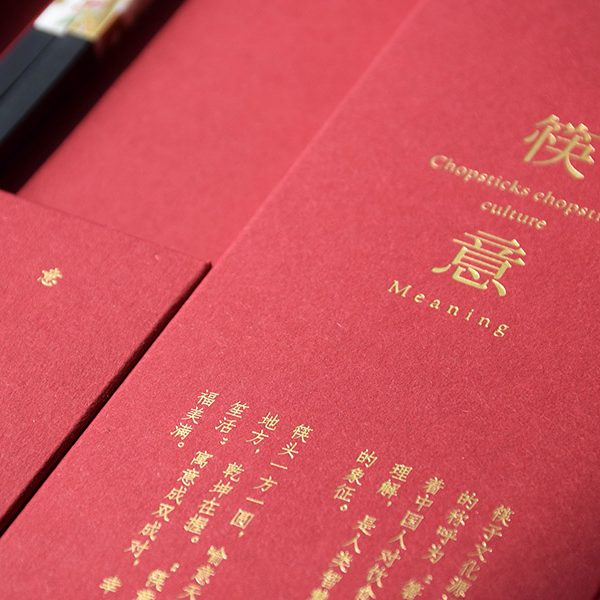 意
筷
Chopsticks
culture
意
Meaning
筷子文化
的称呼为“箸
着中国人对饮食
理解，是人类智
的象征。
筷头一方一圆，喻意天
地方，乾坤在握。“筷
笙活；寓意成双成对，幸
福美满。